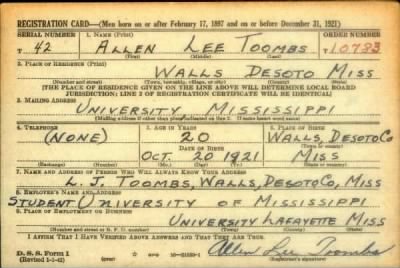 REGISTRATION CARD—(Men born on or after February 17, 1897 and on or before December 31, 1921)
SERIAL NUMBER 1. NAME (Print) ORDER NUMBER
T 42 ALLEN LEE TOOMBS T10783
(First) (Middle) (Last)
2. PLACE OF RESIDENCE (Print)
WALLS DESOTO MISS
(Number and street) (Town, township, village, or city) (County) (State)
(THE PLACE OF RESIDENCE GIVEN ON THE LINE ABOVE WILL DETERMINE LOCAL BOARD
JURISDICTION; LINE 2 OF REGISTRATION CERTIFICATE WILL BE IDENTICAL)
3. MAILING ADDRESS
UNIVERSITY MISSISSIPPI
(Mailing address if other than place indicated on line 2. If same insert word same)
4. TELEPHONE 5. AGE IN YEARS 6. PLACE OF BIRTH
(NONE) 20 WALLS, DESOTO CO
DATE OF BIRTH
OCT. 20 1921 MISS
(Mo.) (Day) (Yr.)
7. NAME AND ADDRESS OF PERSON WHO WILL ALWAYS KNOW YOUR ADDRESS
L. J. TOOMBS, WALLS, DESOTO CO, MISS
8. EMPLOYER'S NAME AND ADDRESS
STUDENT UNIVERSITY OF MISSISSIPPI
9. PLACE OF EMPLOYMENT OR BUSINESS
UNIVERSITY LAFAYETTE MISS
I AFFIRM THAT I HAVE VERIFIED ABOVE ANSWERS AND THAT THEY ARE TRUE.
D. S. S. Form 1
(Revised 1-1-42) Allen Lee Toombs
(Registrant's signature)